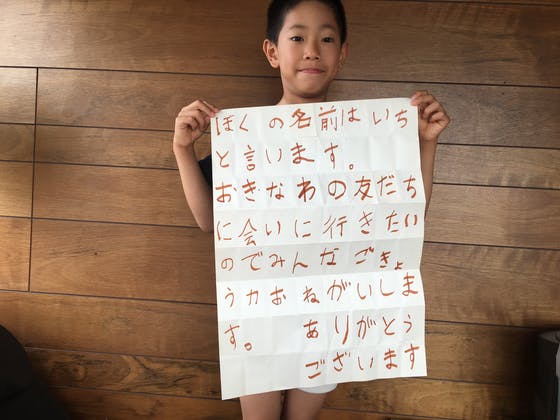 ぼくの名前はいち
と言います。
おきなわの友だち
に会いに行きたい
のでみんなごきょ
うカおねがいしま
す。 ありがとう
ございます